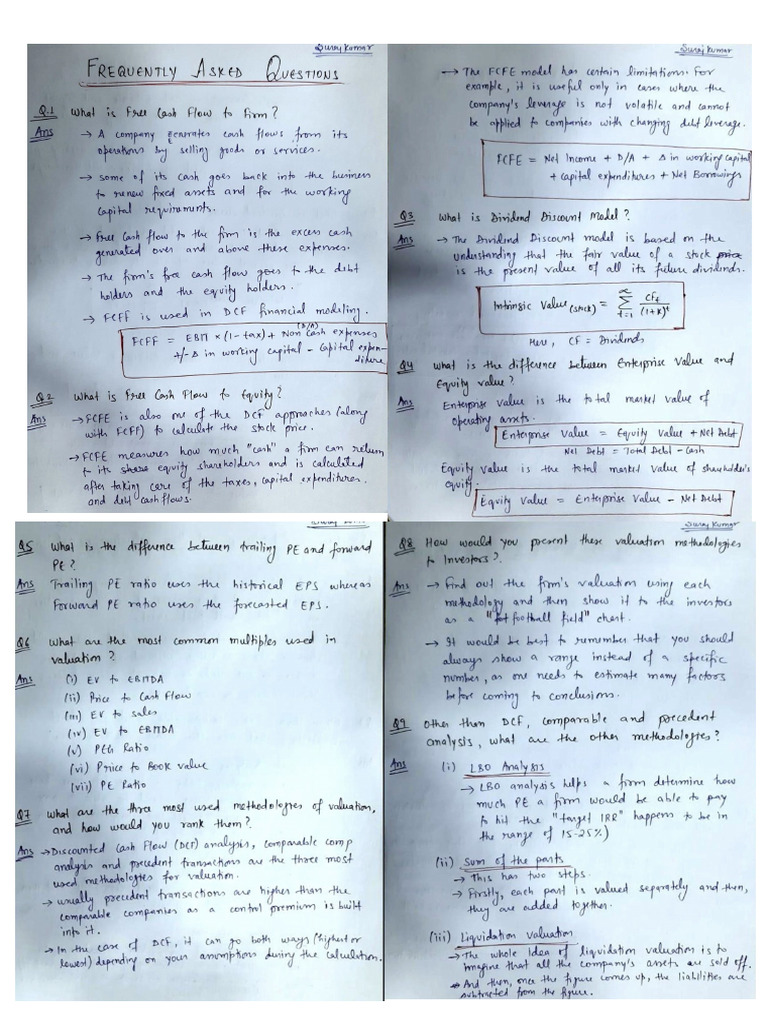 Suraj Kumar
FREQUENTLY ASKED QUESTIONS
Q.1 What is Free Cash Flow to Firm?
Ans → A company generates cash flows from its
operations by selling goods or services.
→ Some of its cash goes back into the business
to renew fixed assets and for the working
Capital requirements.
→ Free Cash flow to the firm is the excess cash
generated over and above these expenses.
→ The firm's free cash flow goes to the debt
holders and the equity holders.
→ FCFF is used in DCF financial modeling.
(D/A)
FCFF = EBIT × (1-tax) + Non Cash expenses
+/- Δ in working capital - Capital expen-
diture
Q2 What is Free Cash Flow to Equity?
Ans → FCFE is also one of the DCF approaches (along
with FCFF) to calculate the stock price.
→ FCFE measures how much "cash" a firm can return
to its share equity shareholders and is calculated
after taking care of the taxes, capital expenditures.
and debt cash flows.
Suraj Kumar
→ The FCFE model has certain limitations. For
example, it is useful only in cases where the
company's leverage is not volatile and cannot
be applied to companies with changing debt leverage.
FCFE = Net Income + D/A + Δ in working capital
+ Capital expenditures + Net Borrowings
Q3 What is Dividend Discount Model?
Ans → The Dividend Discount model is based on the
understanding that the fair value of a stock price
is the present value of all its future dividends.
Intrinsic Value (stock) = ∞ Σ t=1 CFt / (1+k)^t
Here, CF = Dividends
Q4 What is the difference between Enterprise Value and
Equity value?
Ans Enterprise value is the total market value of
operating assets.
Enterprise Value = Equity Value + Net Debt
Net Debt = Total Debt - Cash
Equity value is the total market value of shareholder's
equity.
Equity Value = Enterprise Value - Net Debt
Q5 What is the difference between trailing PE and forward
PE?
Ans Trailing PE ratio uses the historical EPS whereas
Forward PE ratio uses the forecasted EPS.
Q6 What are the most common multiples used in
valuation?
Ans (i) EV to EBITDA
(ii) Price to Cash Flow
(iii) EV to sales
(iv) EV to EBITDA
(v) PEG Ratio
(vi) Price to Book value
(vii) PE Ratio
Q7 What are the three most used methodologies of valuation,
and how would you rank them?
Ans → Discounted Cash Flow (DCF) analysis, comparable comp
analysis and precedent transactions are the three most
used methodologies for valuation.
→ usually precedent transactions are higher than the
comparable companies as a control premium is built
into it.
→ In the case of DCF, it can go both ways (highest or
lowest) depending on your assumptions during the calculation.
Suraj Kumar
Q8 How would you present these valuation methodologies
to Investors?
Ans → Find out the firm's valuation using each
methodology and then show it to the investors
as a "football field" chart.
→ It would be best to remember that you should
always show a range instead of a specific
number, as one needs to estimate many factors
before coming to conclusions.
Q9 Other then DCF, comparable and precedent
analysis, what are the other methodologies?
Ans (i) LBO Analysis
→ LBO analysis helps a firm determine how
much PE a firm would be able to pay
to hit the "target IRR" happens to be in
the range of 15-25%)
(ii) Sum of the parts
→ This has two steps.
→ Firstly, each part is valued separately and then,
they are added together.
(iii) Liquidation valuation
→ The whole idea of liquidation valuation is to
imagine that all the company's assets are sold off.
→ And then, once the figure comes up, the liabilities are
subtracted from the figure.